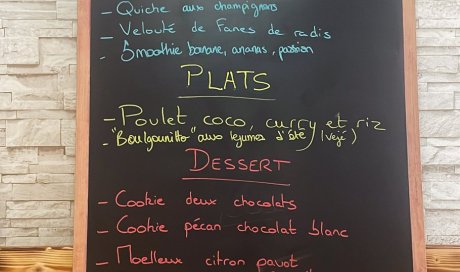 - Quiche aux champignons
- Velouté de fanes de radis
- Smoothie banane, ananas, passion
PLATS
- Poulet coco, curry et riz
- "Boulgounitto" aux légumes d'été (végé)
DESSERT
- Cookie deux chocolats
- Cookie pécan chocolat blanc
- Moelleux citron pavot